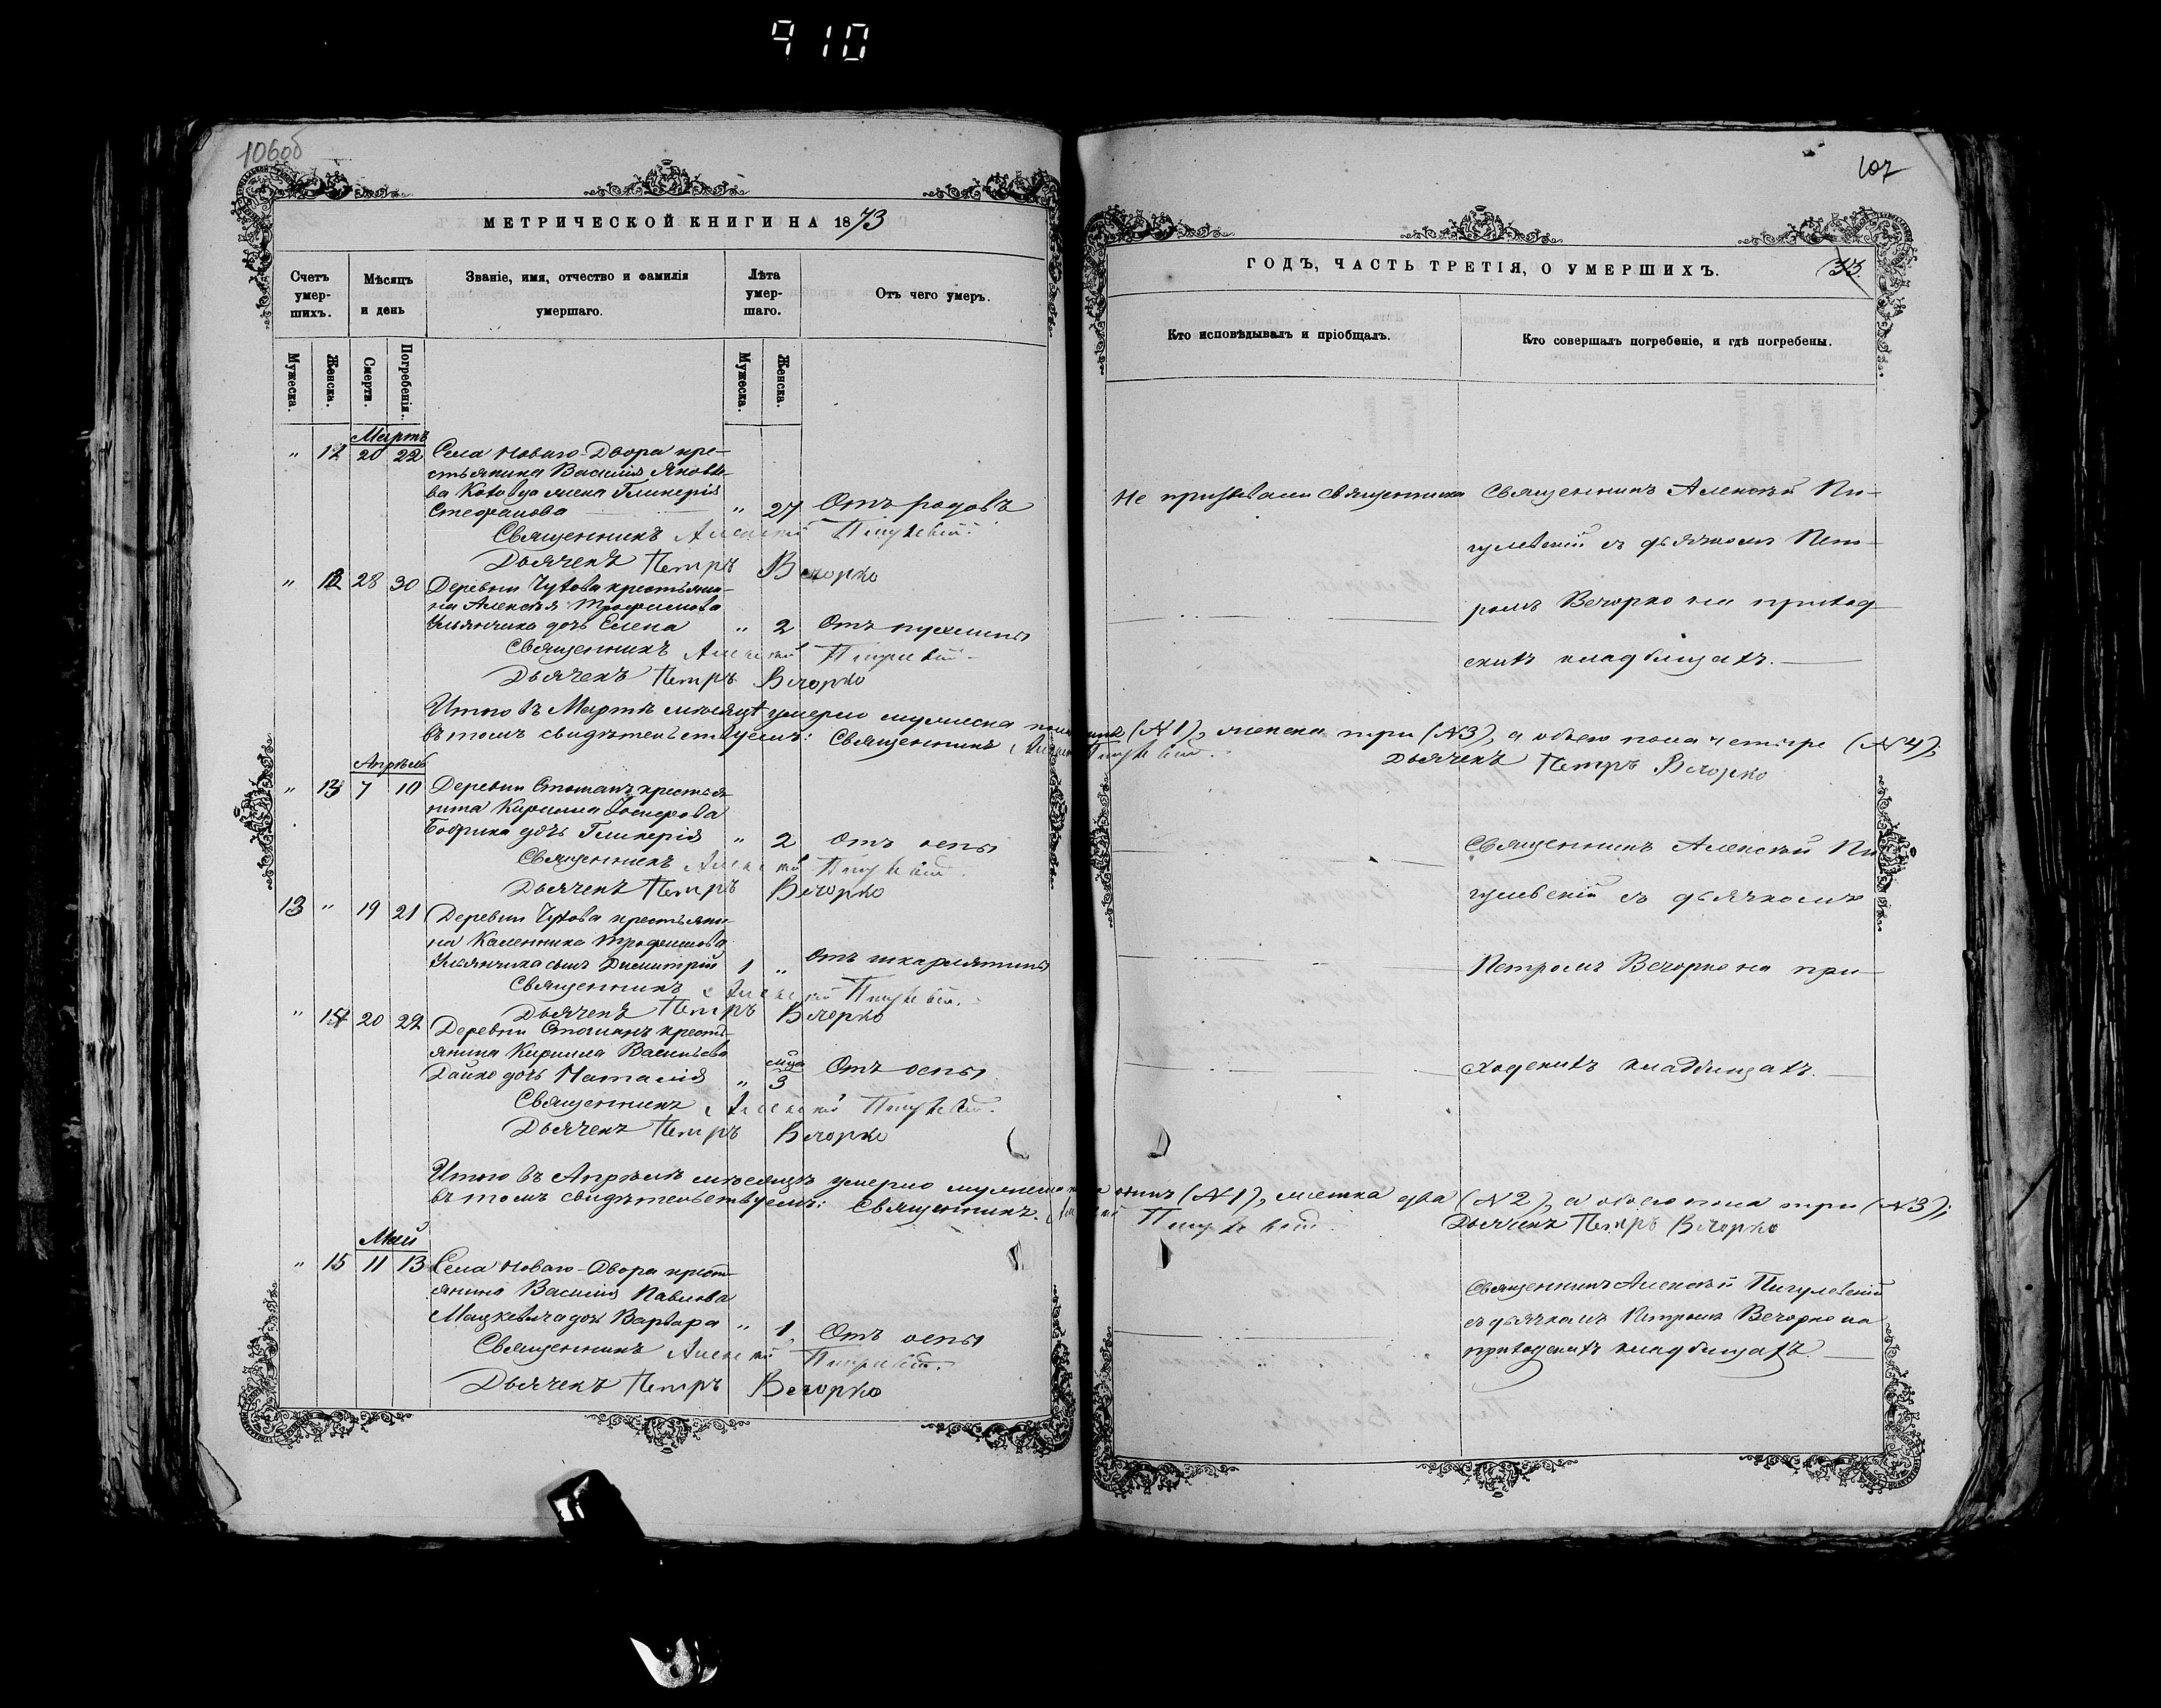 910
106об
МЕТРИЧЕСКОЙ КНИГИ НА 1873
Счетъ умер- шихъ.
Мѣсяцъ и день
Званіе, имя, отчество и фамилія умершаго.
Лѣта умер- шаго.
Отъ чего умеръ.
Мужеска.
Женска.
Смерти.
Погребенія.
Мужеска.
Женска.
Мартъ
" 11 20 22 Села Новаго-Двора кре-
стьянина Василія Яковле-
ва жена Гликерія
Стефанова " 27 Отъ родовъ
Священникъ Алексѣй Пигулевскій.
Дьячекъ Петръ Вечорко
" 12 28 30 Деревни Чухова крестьяни-
на Алексѣя Трофимова
Ульянчика дочь Елена " 2 Отъ пухлины
Священникъ Алексѣй Пигулевскій.
Дьячекъ Петръ Вечорко
Итого въ Мартѣ мѣсяцѣ умерло мужеска пола одинъ (№1), женска три (№3), а обоего пола четыре (№4);
въ томъ свидѣтельствуемъ: Священникъ Алексѣй Пигулевскій. Дьячекъ Петръ Вечорко
Апрѣль
" 13 7 10 Деревни крестья-
нина Кирилла
Бобрика дочь Гликерія " 2 Отъ оспы
Священникъ Алексѣй Пигулевскій.
Дьячекъ Петръ Вечорко
13 " 19 21 Деревни Чухова крестьяни-
на Каленника Трофимова
Ульянчика сынъ Димитрій 1 " Отъ шкарлятины
Священникъ Алексѣй Пигулевскій.
Дьячекъ Петръ Вечорко
" 14 20 22 Деревни кресть-
янина Кирилла Васильева
дочь Наталія " мца 3 Отъ оспы
Священникъ Алексѣй Пигулевскій.
Дьячекъ Петръ Вечорко
Итого въ Апрѣлѣ мѣсяцѣ умерло мужеска пола одинъ (№1), женска два (№2), а обоего пола три (№3);
въ томъ свидѣтельствуемъ: Священникъ Алексѣй Пигулевскій. Дьячекъ Петръ Вечорко
Май
" 15 11 13 Села Новаго-Двора кресть-
янина Василія Павлова
Мацкевича дочь Варвара " 1 Отъ оспы
Священникъ Алексѣй Пигулевскій.
Дьячекъ Петръ Вечорко
107
ГОДЪ, ЧАСТЬ ТРЕТІЯ, О УМЕРШИХЪ.
33.
Кто исповѣдывалъ и пріобщалъ.
Кто совершалъ погребеніе, и гдѣ погребены.
Не призывали священника
Священникъ Алексѣй Пи-
гулевскій съ дьячкомъ Пет-
ромъ Вечорко на приход-
скихъ кладбищахъ.
Священникъ Алексѣй Пи
гулевскій съ дьячкомъ
Петромъ Вечорко на при-
ходскихъ кладбищахъ.
Священникъ Алексѣй Пигулевскій
съ дьячкомъ Петромъ Вечорко на
приходскихъ кладбищахъ.